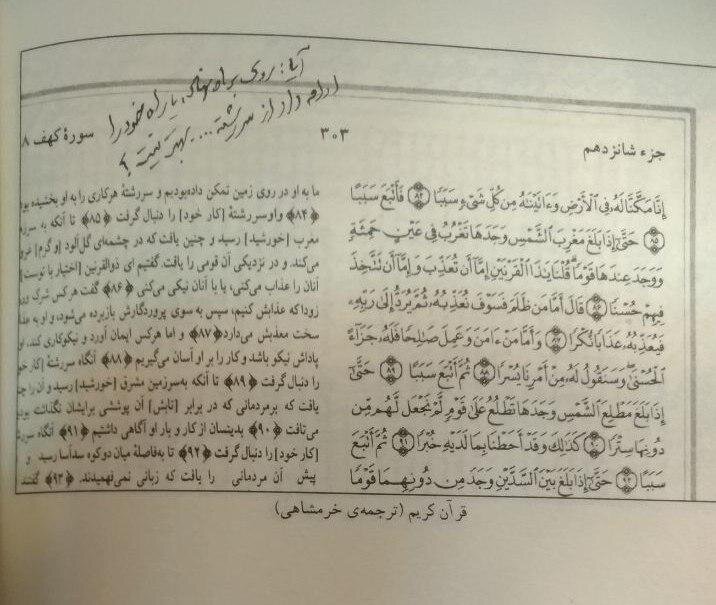 روی براه یا راه خود را
ادامه داد از سررشته .... بهتر نیست ؟
جزء شانزدهم
۳۰۳
سورهٔ کهف ۱۸
إِنَّا مَكَّنَّا لَهُۥ فِى ٱلْأَرْضِ وَءَاتَيْنَٰهُ مِن كُلِّ شَىْءٍ سَبَبًا ﴿٨٤﴾ فَأَتْبَعَ سَبَبًا
﴿٨٥﴾ حَتَّىٰٓ إِذَا بَلَغَ مَغْرِبَ ٱلشَّمْسِ وَجَدَهَا تَغْرُبُ فِى عَيْنٍ حَمِئَةٍ
وَوَجَدَ عِندَهَا قَوْمًا قُلْنَا يَٰذَا ٱلْقَرْنَيْنِ إِمَّآ أَن تُعَذِّبَ وَإِمَّآ أَن تَتَّخِذَ
فِيهِمْ حُسْنًا ﴿٨٦﴾ قَالَ أَمَّا مَن ظَلَمَ فَسَوْفَ نُعَذِّبُهُۥ ثُمَّ يُرَدُّ إِلَىٰ رَبِّهِۦ
فَيُعَذِّبُهُۥ عَذَابًا نُّكْرًا ﴿٨٧﴾ وَأَمَّا مَنْ ءَامَنَ وَعَمِلَ صَٰلِحًا فَلَهُۥ جَزَآءً
ٱلْحُسْنَىٰ وَسَنَقُولُ لَهُۥ مِنْ أَمْرِنَا يُسْرًا ﴿٨٨﴾ ثُمَّ أَتْبَعَ سَبَبًا ﴿٨٩﴾ حَتَّىٰٓ
إِذَا بَلَغَ مَطْلِعَ ٱلشَّمْسِ وَجَدَهَا تَطْلُعُ عَلَىٰ قَوْمٍ لَّمْ نَجْعَل لَّهُم مِّن
دُونِهَا سِتْرًا ﴿٩٠﴾ كَذَٰلِكَ وَقَدْ أَحَطْنَا بِمَا لَدَيْهِ خُبْرًا ﴿٩١﴾ ثُمَّ أَتْبَعَ
سَبَبًا ﴿٩٢﴾ حَتَّىٰٓ إِذَا بَلَغَ بَيْنَ ٱلسَّدَّيْنِ وَجَدَ مِن دُونِهِمَا قَوْمًا
ما به او در روی زمین تمکن داده‌بودیم و سررشتهٔ هرکاری را به او بخشیده بو
﴿۸۴﴾ و او سررشتهٔ [کار خود] را دنبال گرفت ﴿۸۵﴾ تا آنکه به سرزم
مغرب [خورشید] رسید و چنین یافت که در چشمه‌ای گل‌آلود [و گرم] غرو
می‌کند. و در نزدیکی آن قومی را یافت. گفتیم ای ذوالقرنین [اختیار با توست]
آنان را عذاب می‌کنی، یا با آنان نیکی می‌کنی ﴿۸۶﴾ گفت هرکس شرک ورز
زودا که عذابش کنیم، سپس به سوی پروردگارش بازبرده می‌شود، و او به عذا
سخت معذبش می‌دارد ﴿۸۷﴾ و اما هرکس ایمان آورد و نیکوکاری کند. او
پاداش نیکو باشد و کار را بر او آسان می‌گیریم ﴿۸۸﴾ آنگاه سررشتهٔ [کار خو
را دنبال گرفت ﴿۸۹﴾ تا آنکه به‌سرزمین مشرق [خورشید] رسید و آن را چن
یافت که برمردمانی که در برابر [تابش] آن پوششی برایشان نگذاشته بودی
می‌تافت ﴿۹۰﴾ بدینسان از کار و بار او آگاهی داشتیم ﴿۹۱﴾ آنگاه سررش
[کار خود] را دنبال گرفت ﴿۹۲﴾ تا به‌فاصلهٔ میان دوکوه سدآسا رسید و
پیش آن مردمانی را یافت که زبانی نمی‌فهمیدند. ﴿۹۳﴾ گفتند
قرآن کریم (ترجمه‌ی خرمشاهی)